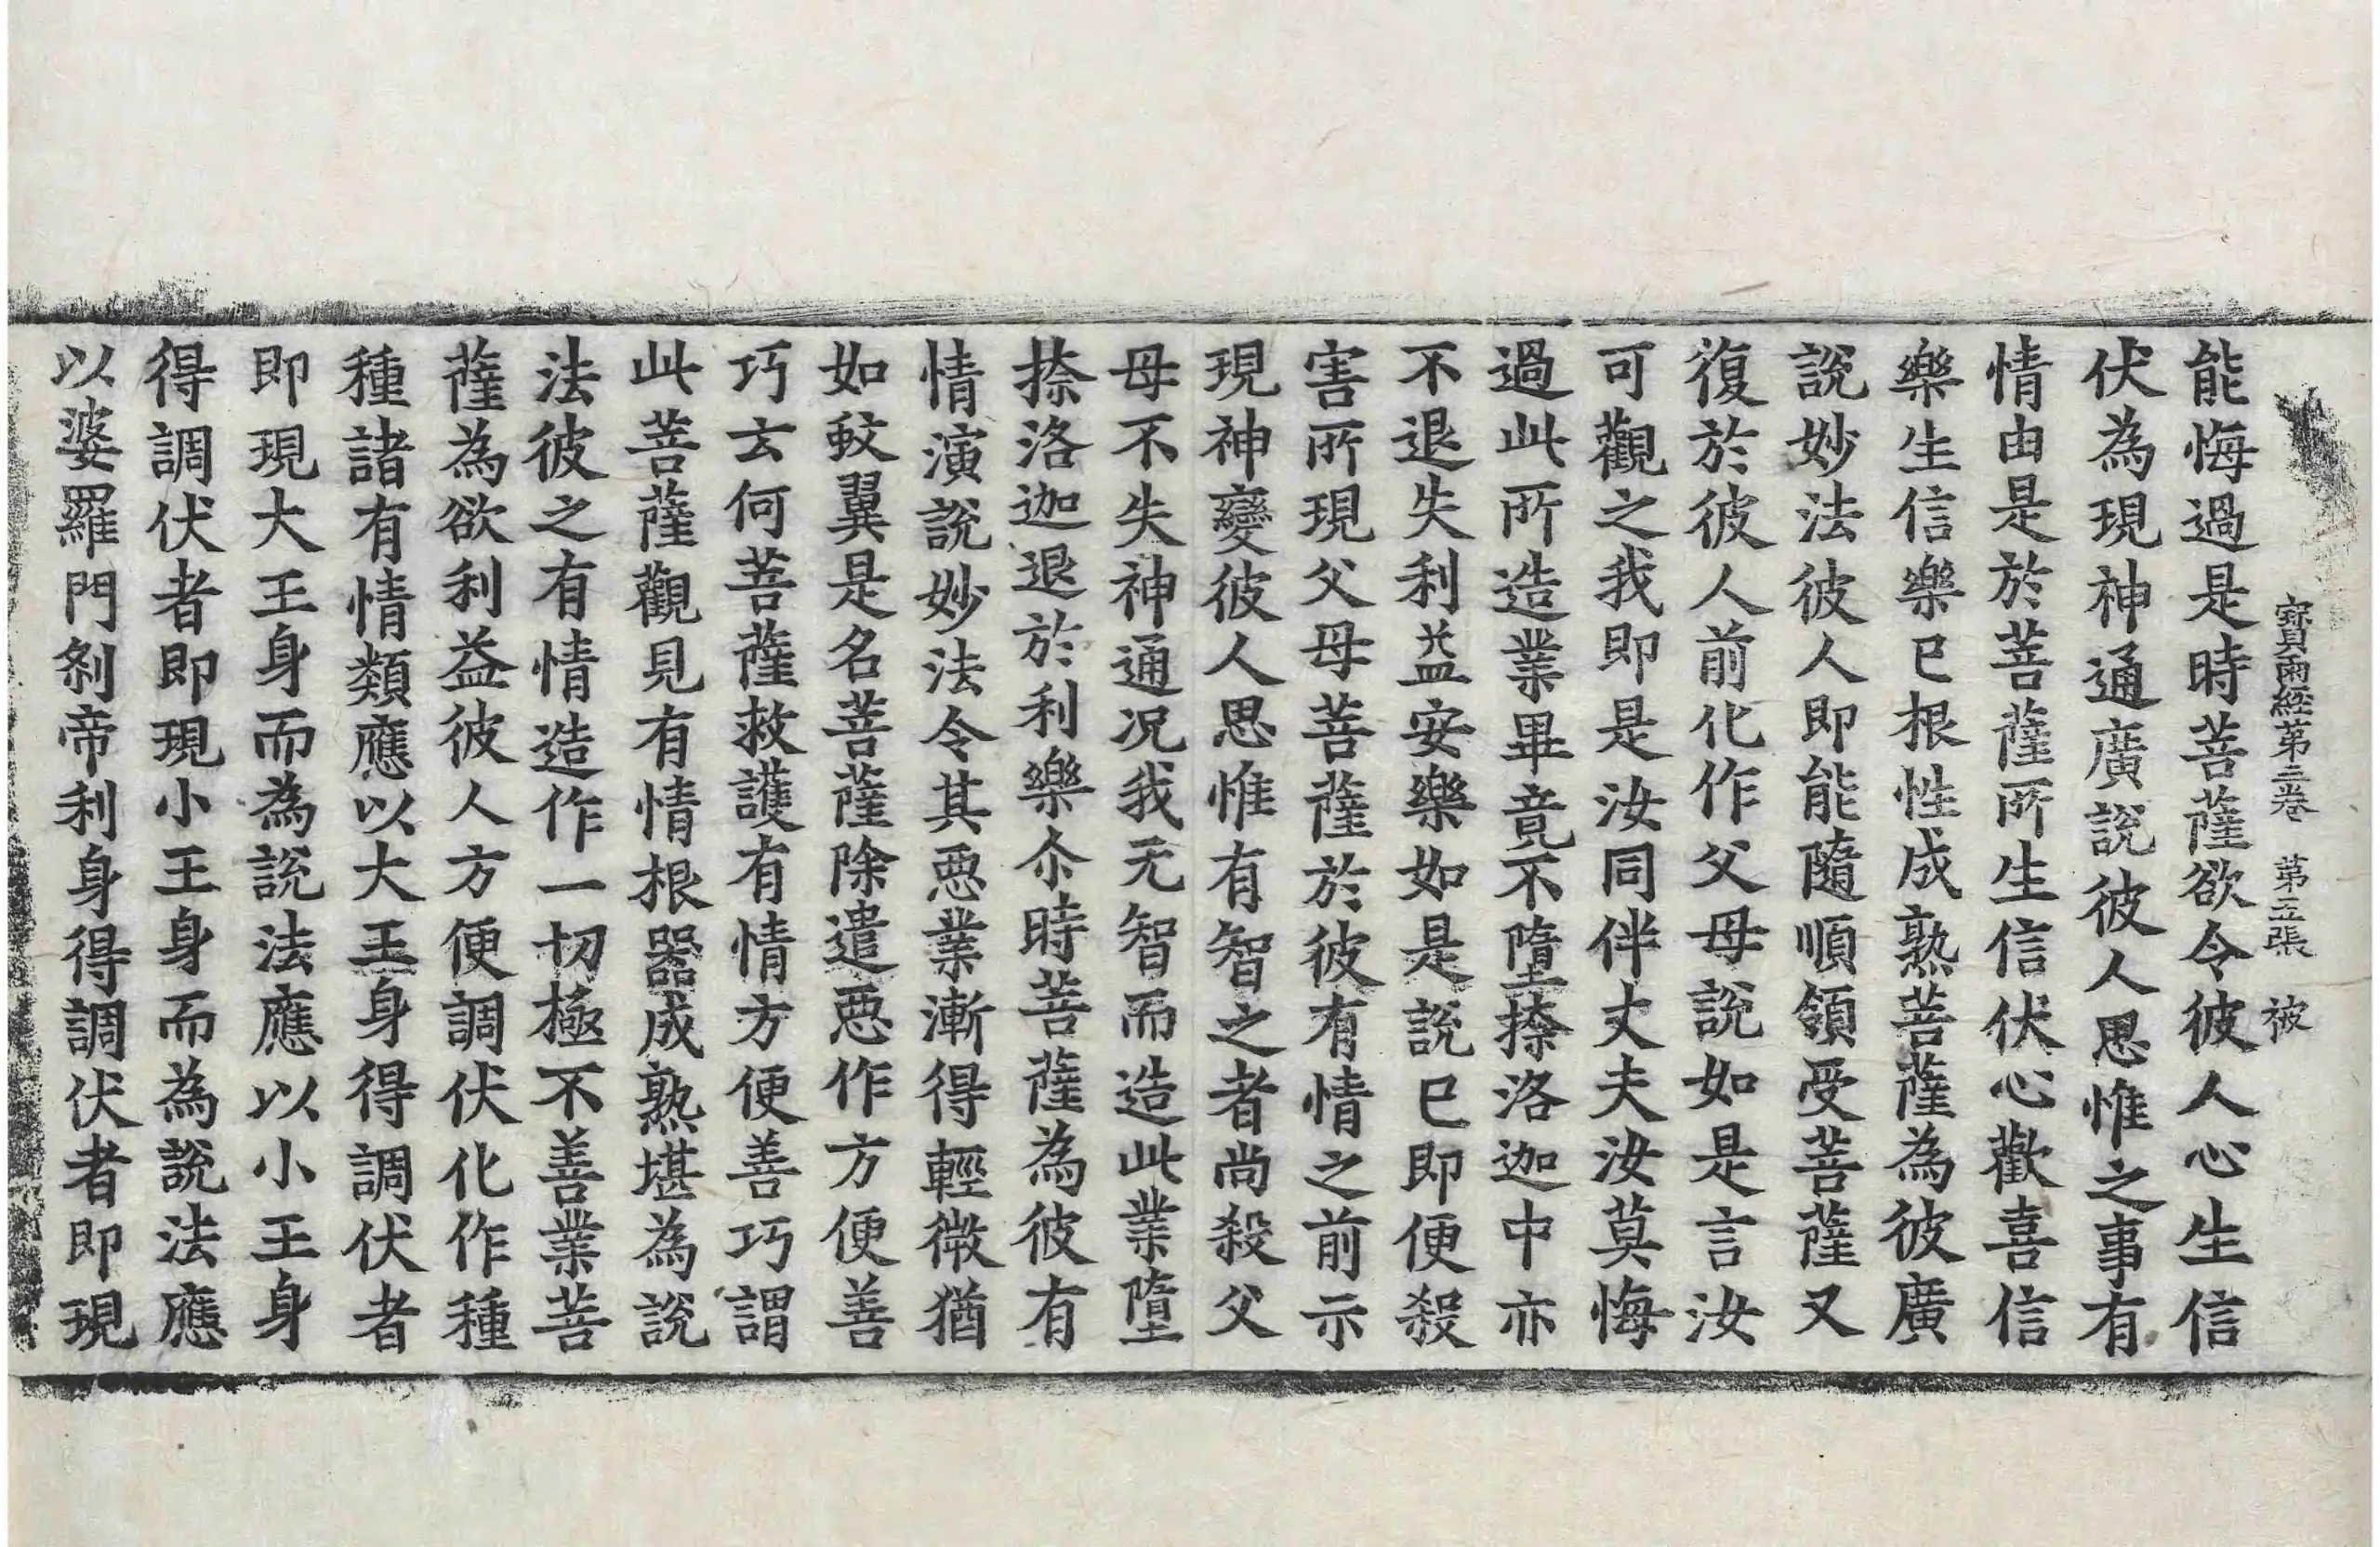 寶雨經第三卷 第五張 被
能悔過是時菩薩欲令彼人心生信
伏為現神通廣說彼人思惟之事有
情由是於菩薩所生信伏心歡喜信
樂生信樂已根性成熟菩薩為彼廣
說妙法彼人即能隨順領受菩薩又
復於彼人前化作父母說如是言汝
可觀之我即是汝同伴丈夫汝莫悔
過此所造業畢竟不墮捺洛迦中亦
不退失利益安樂如是說已即便殺
害所現父母菩薩於彼有情之前示
現神變彼人思惟有智之者尚殺父
母不失神通况我无智而造此業墮
捺洛迦退於利樂尒時菩薩為彼有
情演說妙法令其惡業漸得輕微猶
如蚊翼是名菩薩除遣惡作方便善
巧云何菩薩救護有情方便善巧謂
此菩薩觀見有情根器成熟堪為說
法彼之有情造作一切極不善業菩
薩為欲利益彼人方便調伏化作種
種諸有情類應以大王身得調伏者
即現大王身而為說法應以小王身
得調伏者即現小王身而為說法應
以婆羅門刹帝利身得調伏者即現